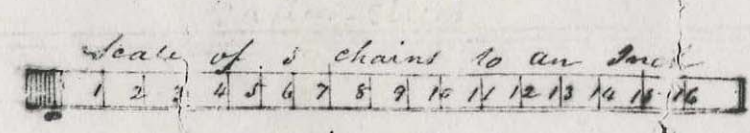 Scale of 8 chains to an Inch
1 2 3 4 5 6 7 8 9 10 11 12 13 14 15 16